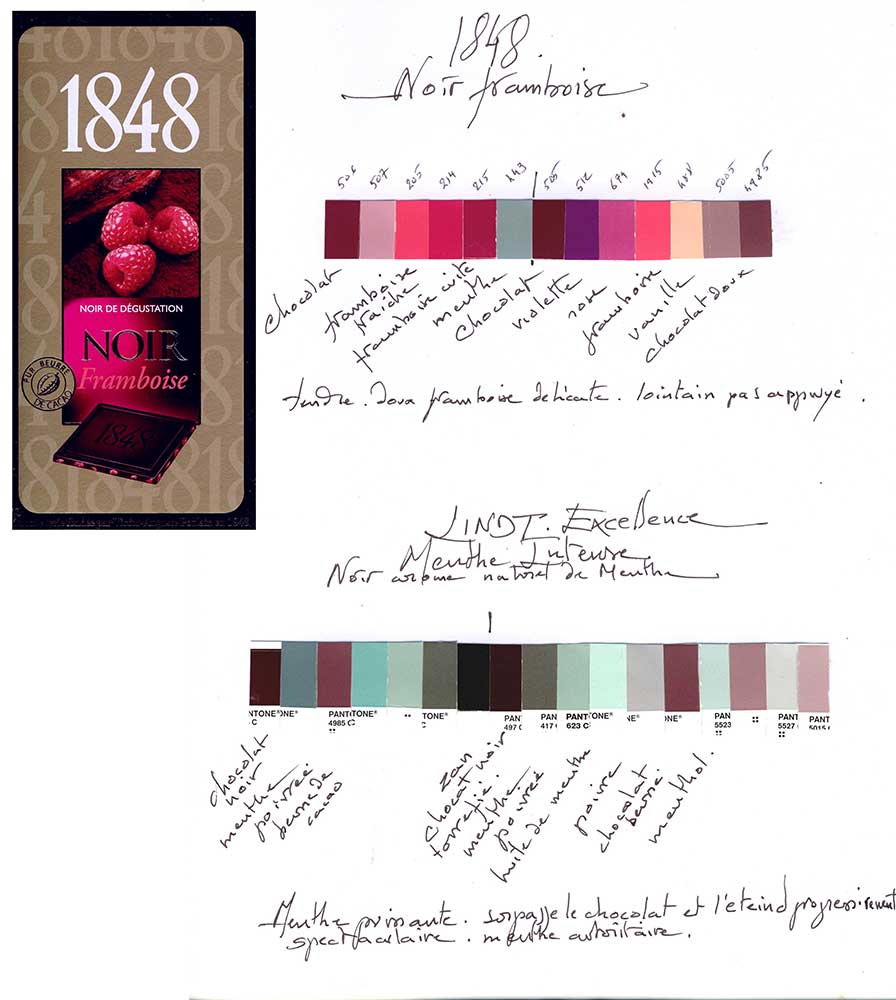 1848
NOIR DE DÉGUSTATION
NOIR
Framboise
PUR BEURRE
DE CACAO
1848
1848.
Noir framboise
505 507 205 214 215 443 505 512 674 1915 488 5005 4985
chocolat
framboise
fraiche
framboise cuite
menthe
chocolat
violette
rose
framboise
vanille
chocolat doux
tendre. doux framboise delicate. lointain pas appuyé.
LINDT. Excellence
Menthe Intense.
Noir arôme naturel de Menthe
PANTONE® 4985 C
PANT 497 C
PAN 417
PANT 623 C
PAN 5523
PANT 5527
PANT 5015
chocolat
noir
menthe
poivrée
beurre de
cacao
zan
chocat noir
torrefié.
menthe
poivrée
huile de menthe
poivre
chocolat
beurre
menthol.
Menthe puissante. surpasse le chocolat et l'eteind progressivement
spectaculaire. menthe autoritaire.